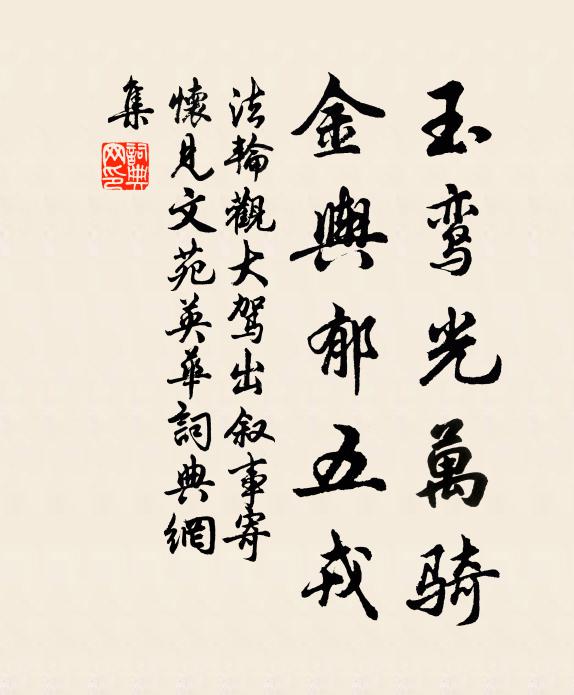 玉鸾光萬骑
金輿郁五戎
法輪觀大駕出叙事寄
懷見文苑英華詞典網
集
詞典網印